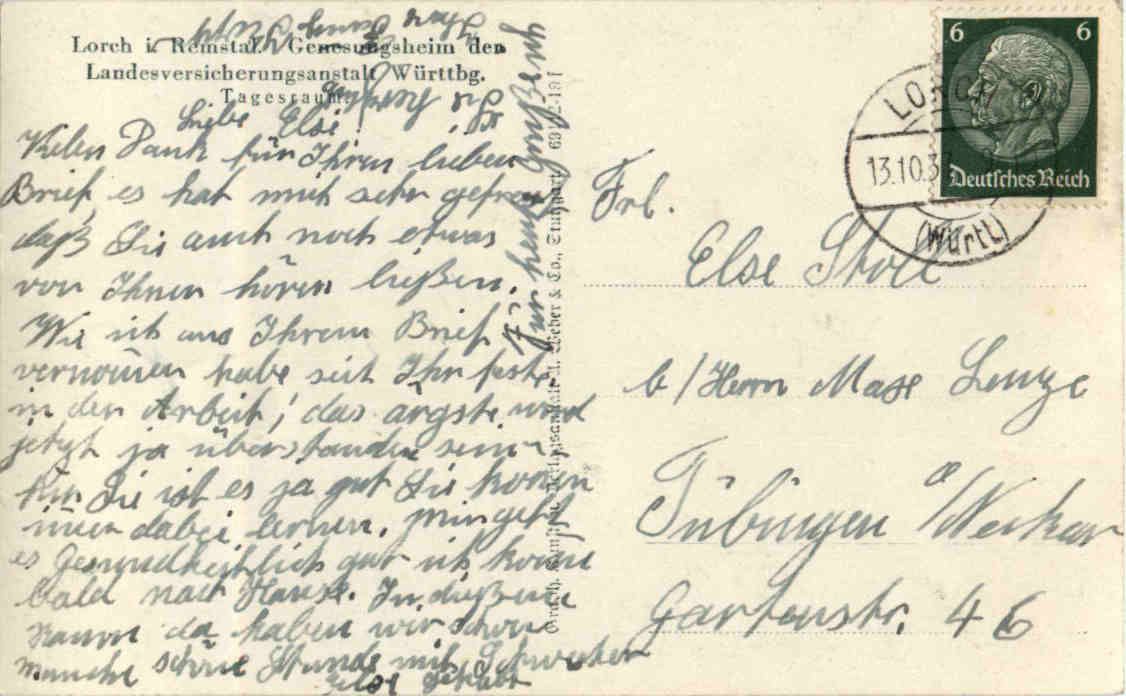 Lorch i. Remstal. Genesungsheim der
Landesversicherungsanstalt Württbg.
Tagesraum.
Liebe Else!
Vielen Dank für Ihren lieben
Brief, es hat mich sehr gefreut
daß Sie auch noch etwas
von Ihnen hören ließen.
Wie ich aus Ihrem Brief
vernommen habe seit Ihr feste
in der Arbeit, das ärgste wird
jetzt ja überstanden sein.
Für Sie ist es ja gut Sie können
immer dabei lernen. Mir geht
es Gesundheitlich gut ich komme
bald nach Hause. In dießem
Raum da haben wir schon
manche schöne Stunde mit Schwester
Else gehabt
Für heute grüßt
69172-19
Graph. Kunst- Verlagsanstalt u. Weber & Co., Stuttgart
6
6
Deutsches Reich
LORCH
13.10.3
(Württ.)
Frl.
Else Stoll
b/Herrn Maxe Lenze
Tübingen a/Neckar
Gartenstr. 46